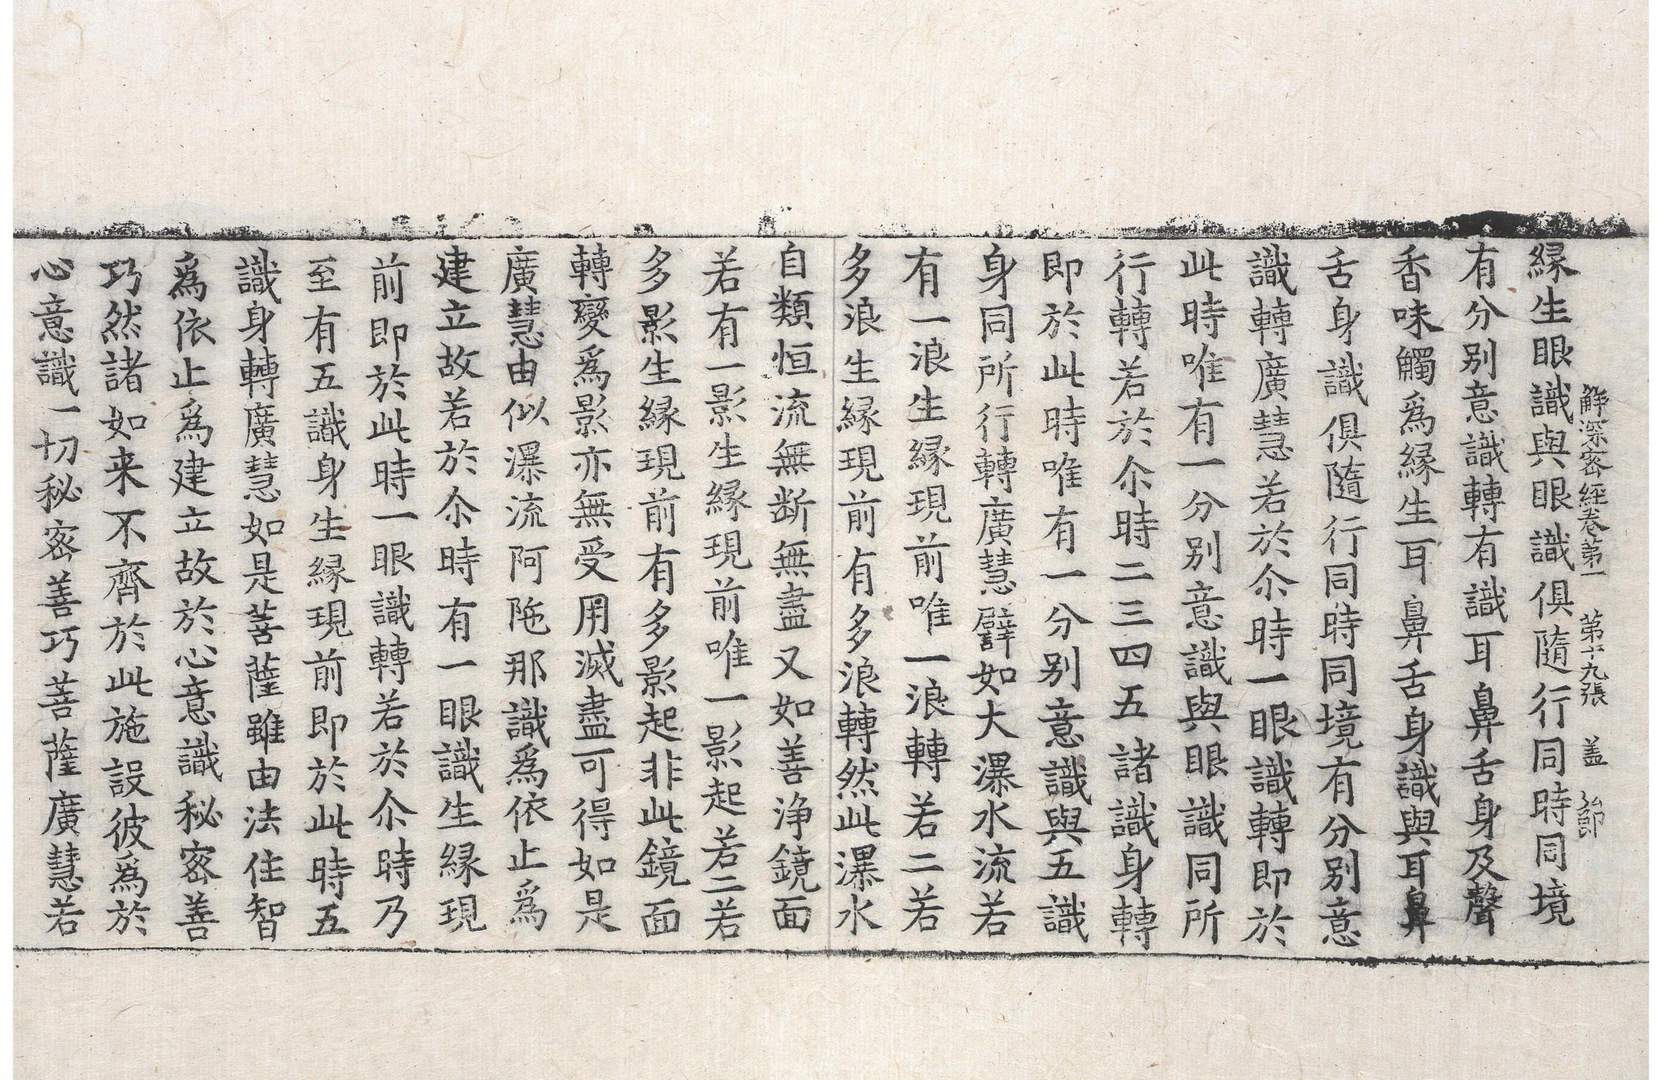 解深密經卷第一　第十九張　盖　
縁生眼識與眼識俱隨行同時同境
有分别意識轉有識耳鼻舌身及聲
香味觸爲縁生耳鼻舌身識與耳鼻
舌身識俱隨行同時同境有分别意
識轉廣慧若於尒時一眼識轉即於
此時唯有一分别意識與眼識同所
行轉若於尒時二三四五諸識身轉
即於此時唯有一分别意識與五識
身同所行轉廣慧譬如大瀑水流若
有一浪生縁現前唯一浪轉若二若
多浪生縁現前有多浪轉然此瀑水
自類恒流無断無盡又如善浄鏡面
若有一影生縁現前唯一影起若二若
多影生縁現前有多影起非此鏡面
轉變爲影亦無受用滅盡可得如是
廣慧由似瀑流阿陁那識爲依止爲
建立故若於尒時有一眼識生縁現
前即於此時一眼識轉若於尒時乃
至有五識身生縁現前即於此時五
識身轉廣慧如是菩薩雖由法住智
爲依止爲建立故於心意識秘密善
巧然諸如来不齊於此施設彼爲於
心意識一切秘密善巧菩薩廣慧若